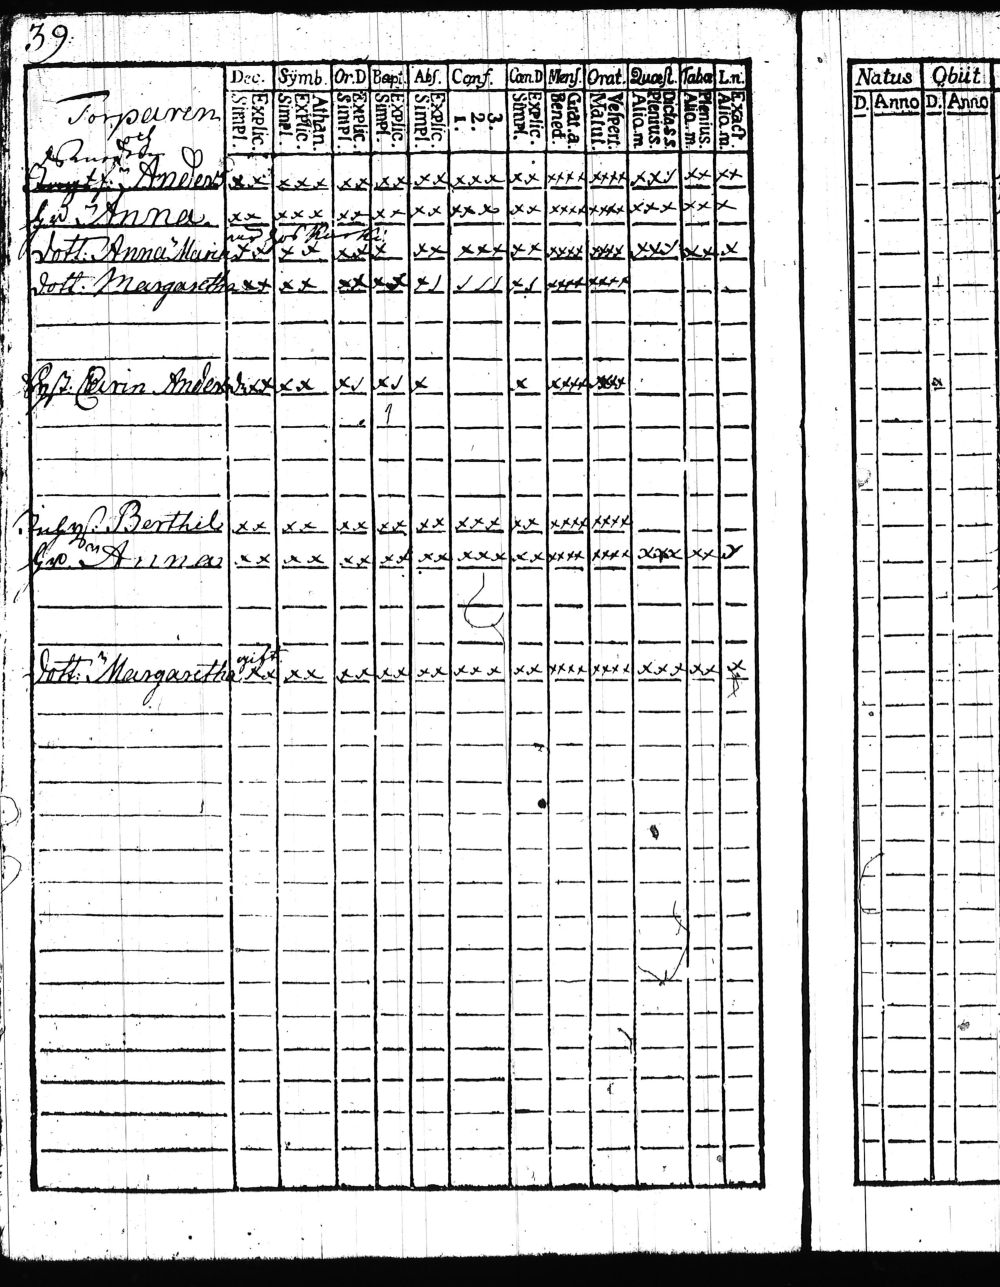 39
Dec. Symb. Or.D Bapt. Abs. Conf. Cœn.D Mens. Orat. Quæst. Tabæ L.n.
Simpl. Explic. Simpl. Explic. Athan. Simpl. Explic. Simpl. Explic. Simpl. Explic. 1. 2. 3. Simpl. Explic. Bened. Grat.a Matut. Vespert. Alio.m Plenius. Dicta s.s. Alio.m. Plenius. Alio.m. Exact
Natus Obiit
D. Anno D. Anno
Torparen
och
Anders
Anna
Dott. Anna Maria
Dott. Margaretha
Carin Anders
Berthil
Anna
gift
Dott. Margaretha